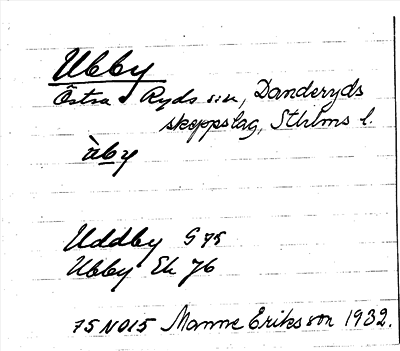 Ubby
Östra Ryds sn, Danderyds
skeppslag, Sthlms l.
ùby
Uddby G 75
Ubby Ek 76
75 NO15 Manne Eriksson 1932.